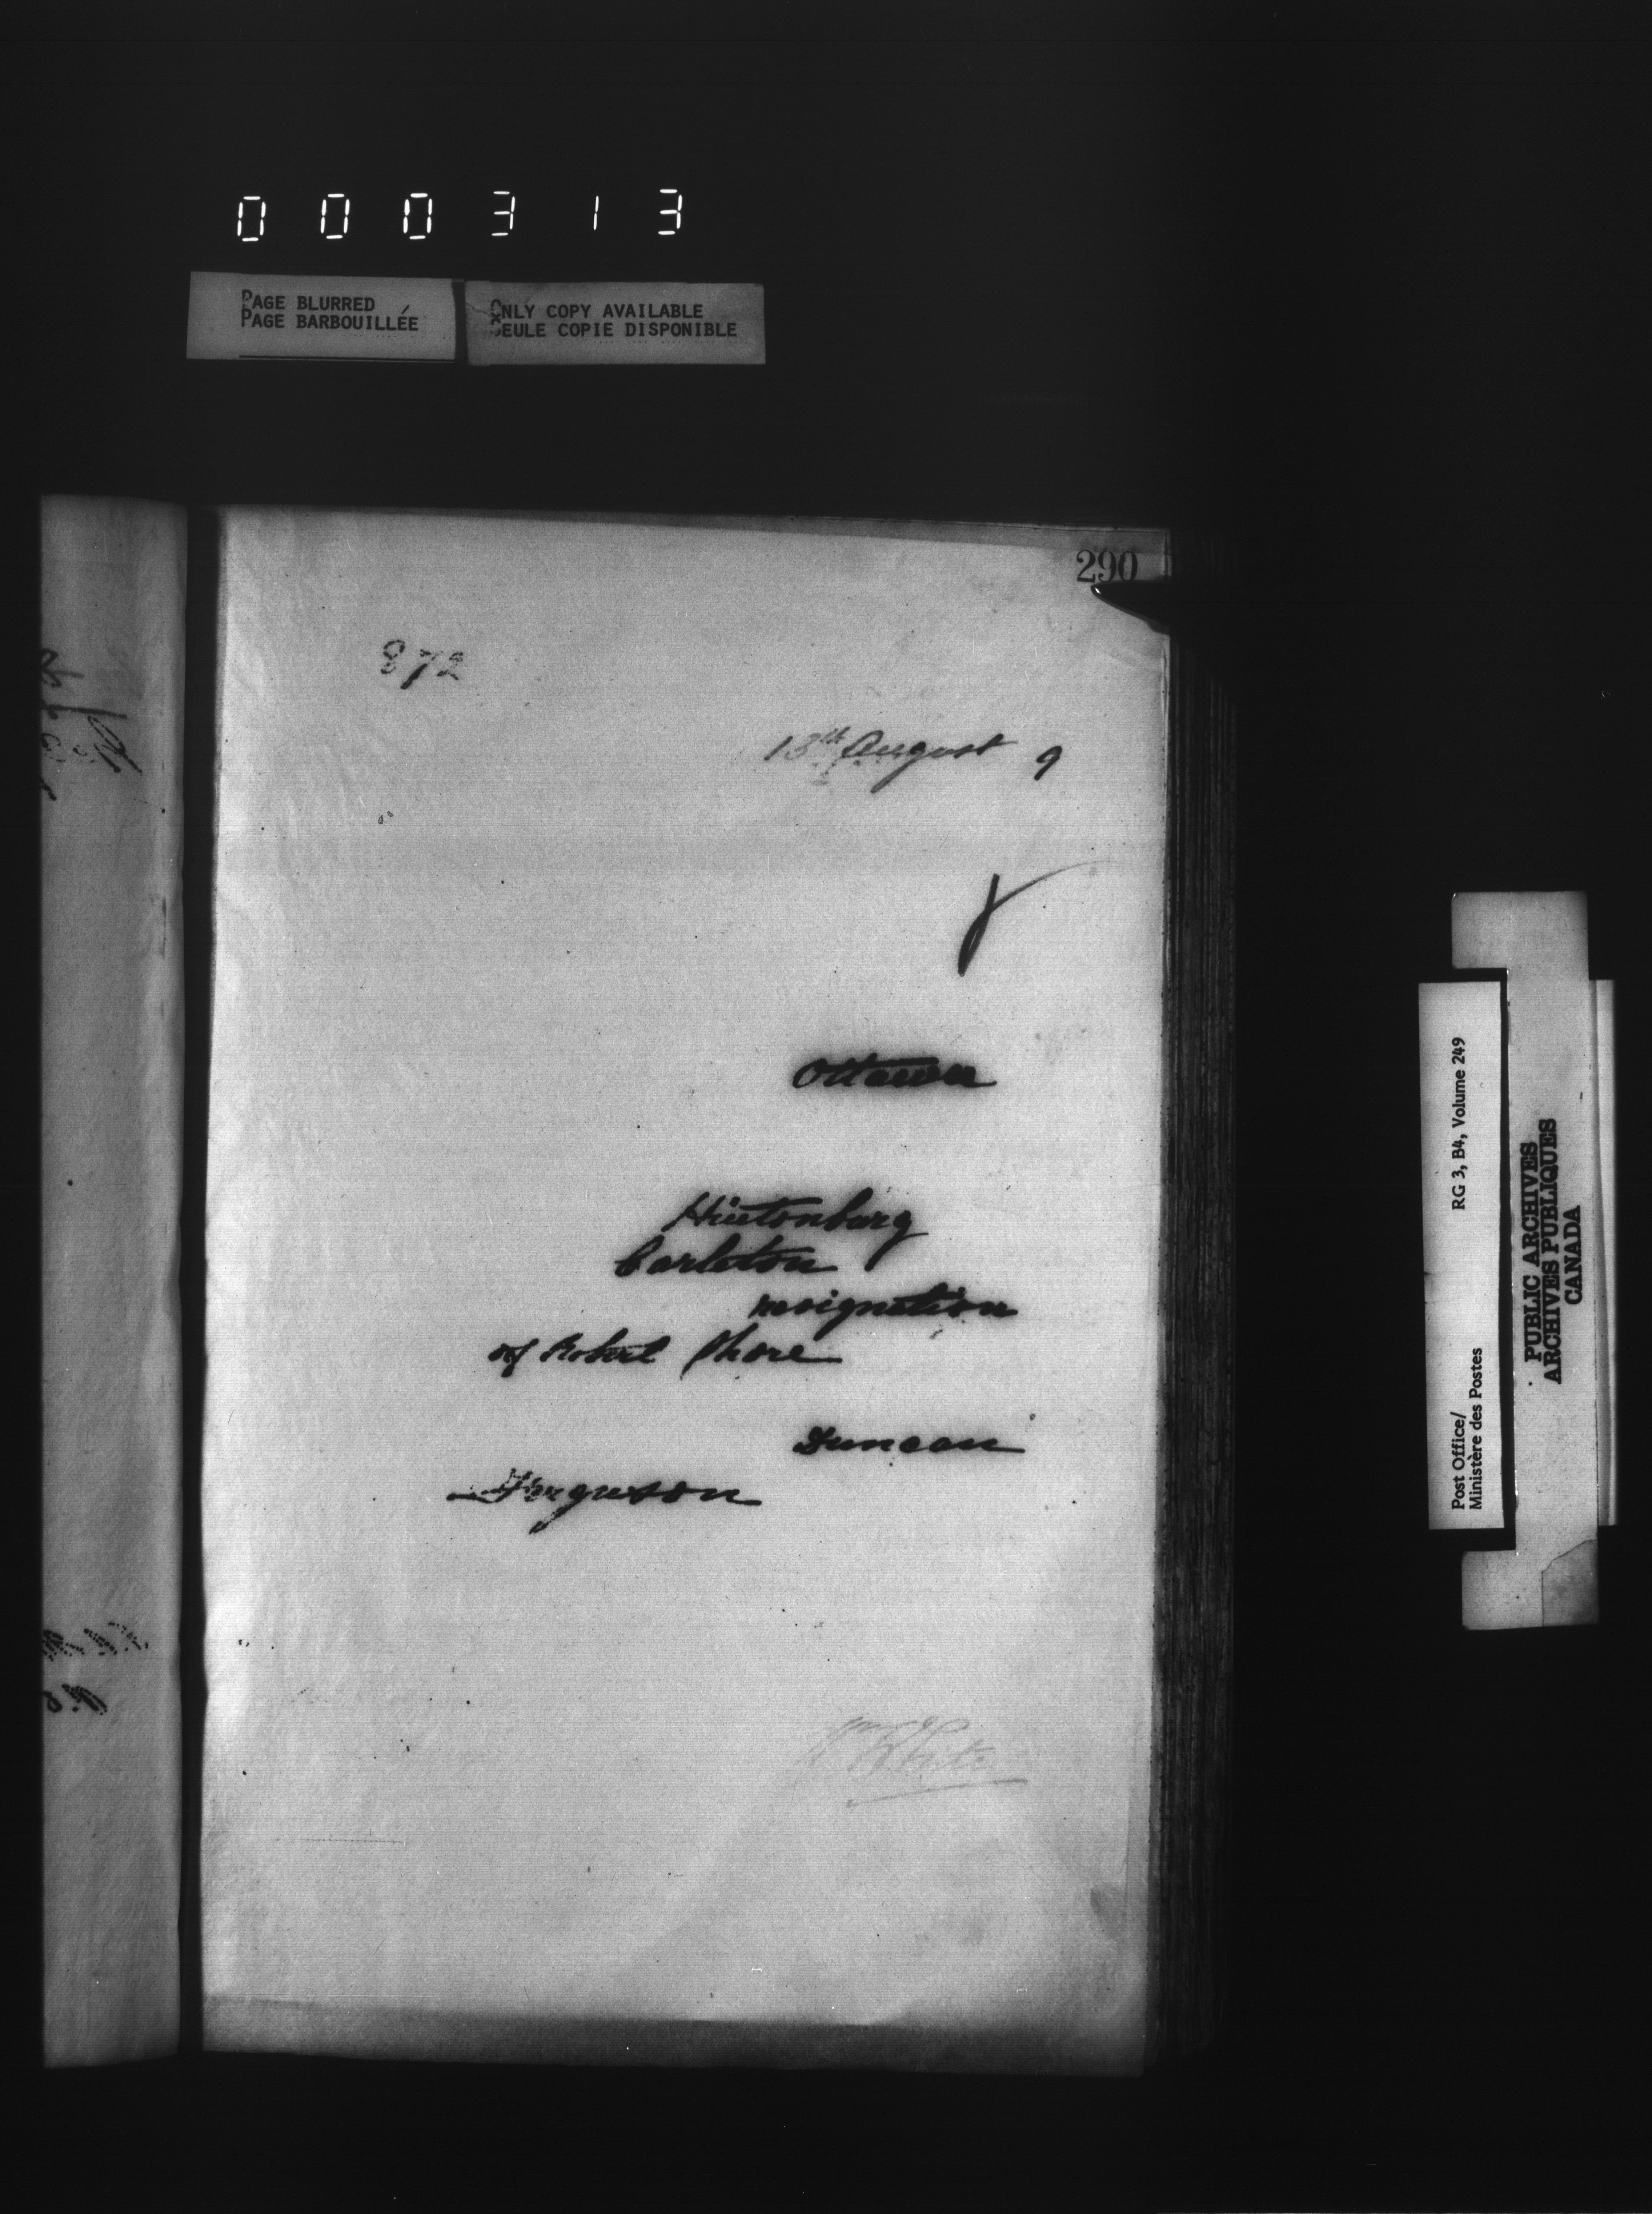 000313
PAGE BLURRED
PAGE BARBOUILLÉE
ONLY COPY AVAILABLE
SEULE COPIE DISPONIBLE
290
872
13th August 9
Ottawa
Hintonburg
Carleton
resignation
of Robert Shore
Duncan
Ferguson
White
Post Office/
Ministère des Postes
RG 3, B4, Volume 249
PUBLIC ARCHIVES
ARCHIVES PUBLIQUES
CANADA